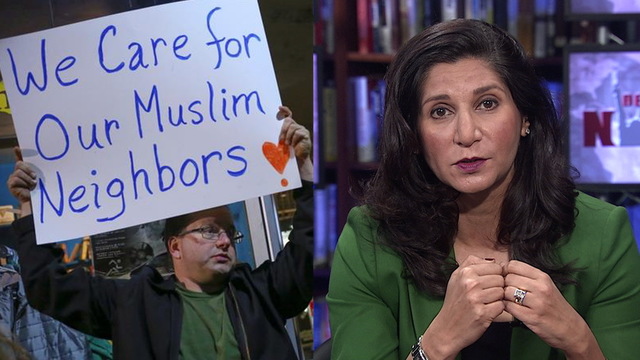 We Care for
Our Muslim
Neighbors